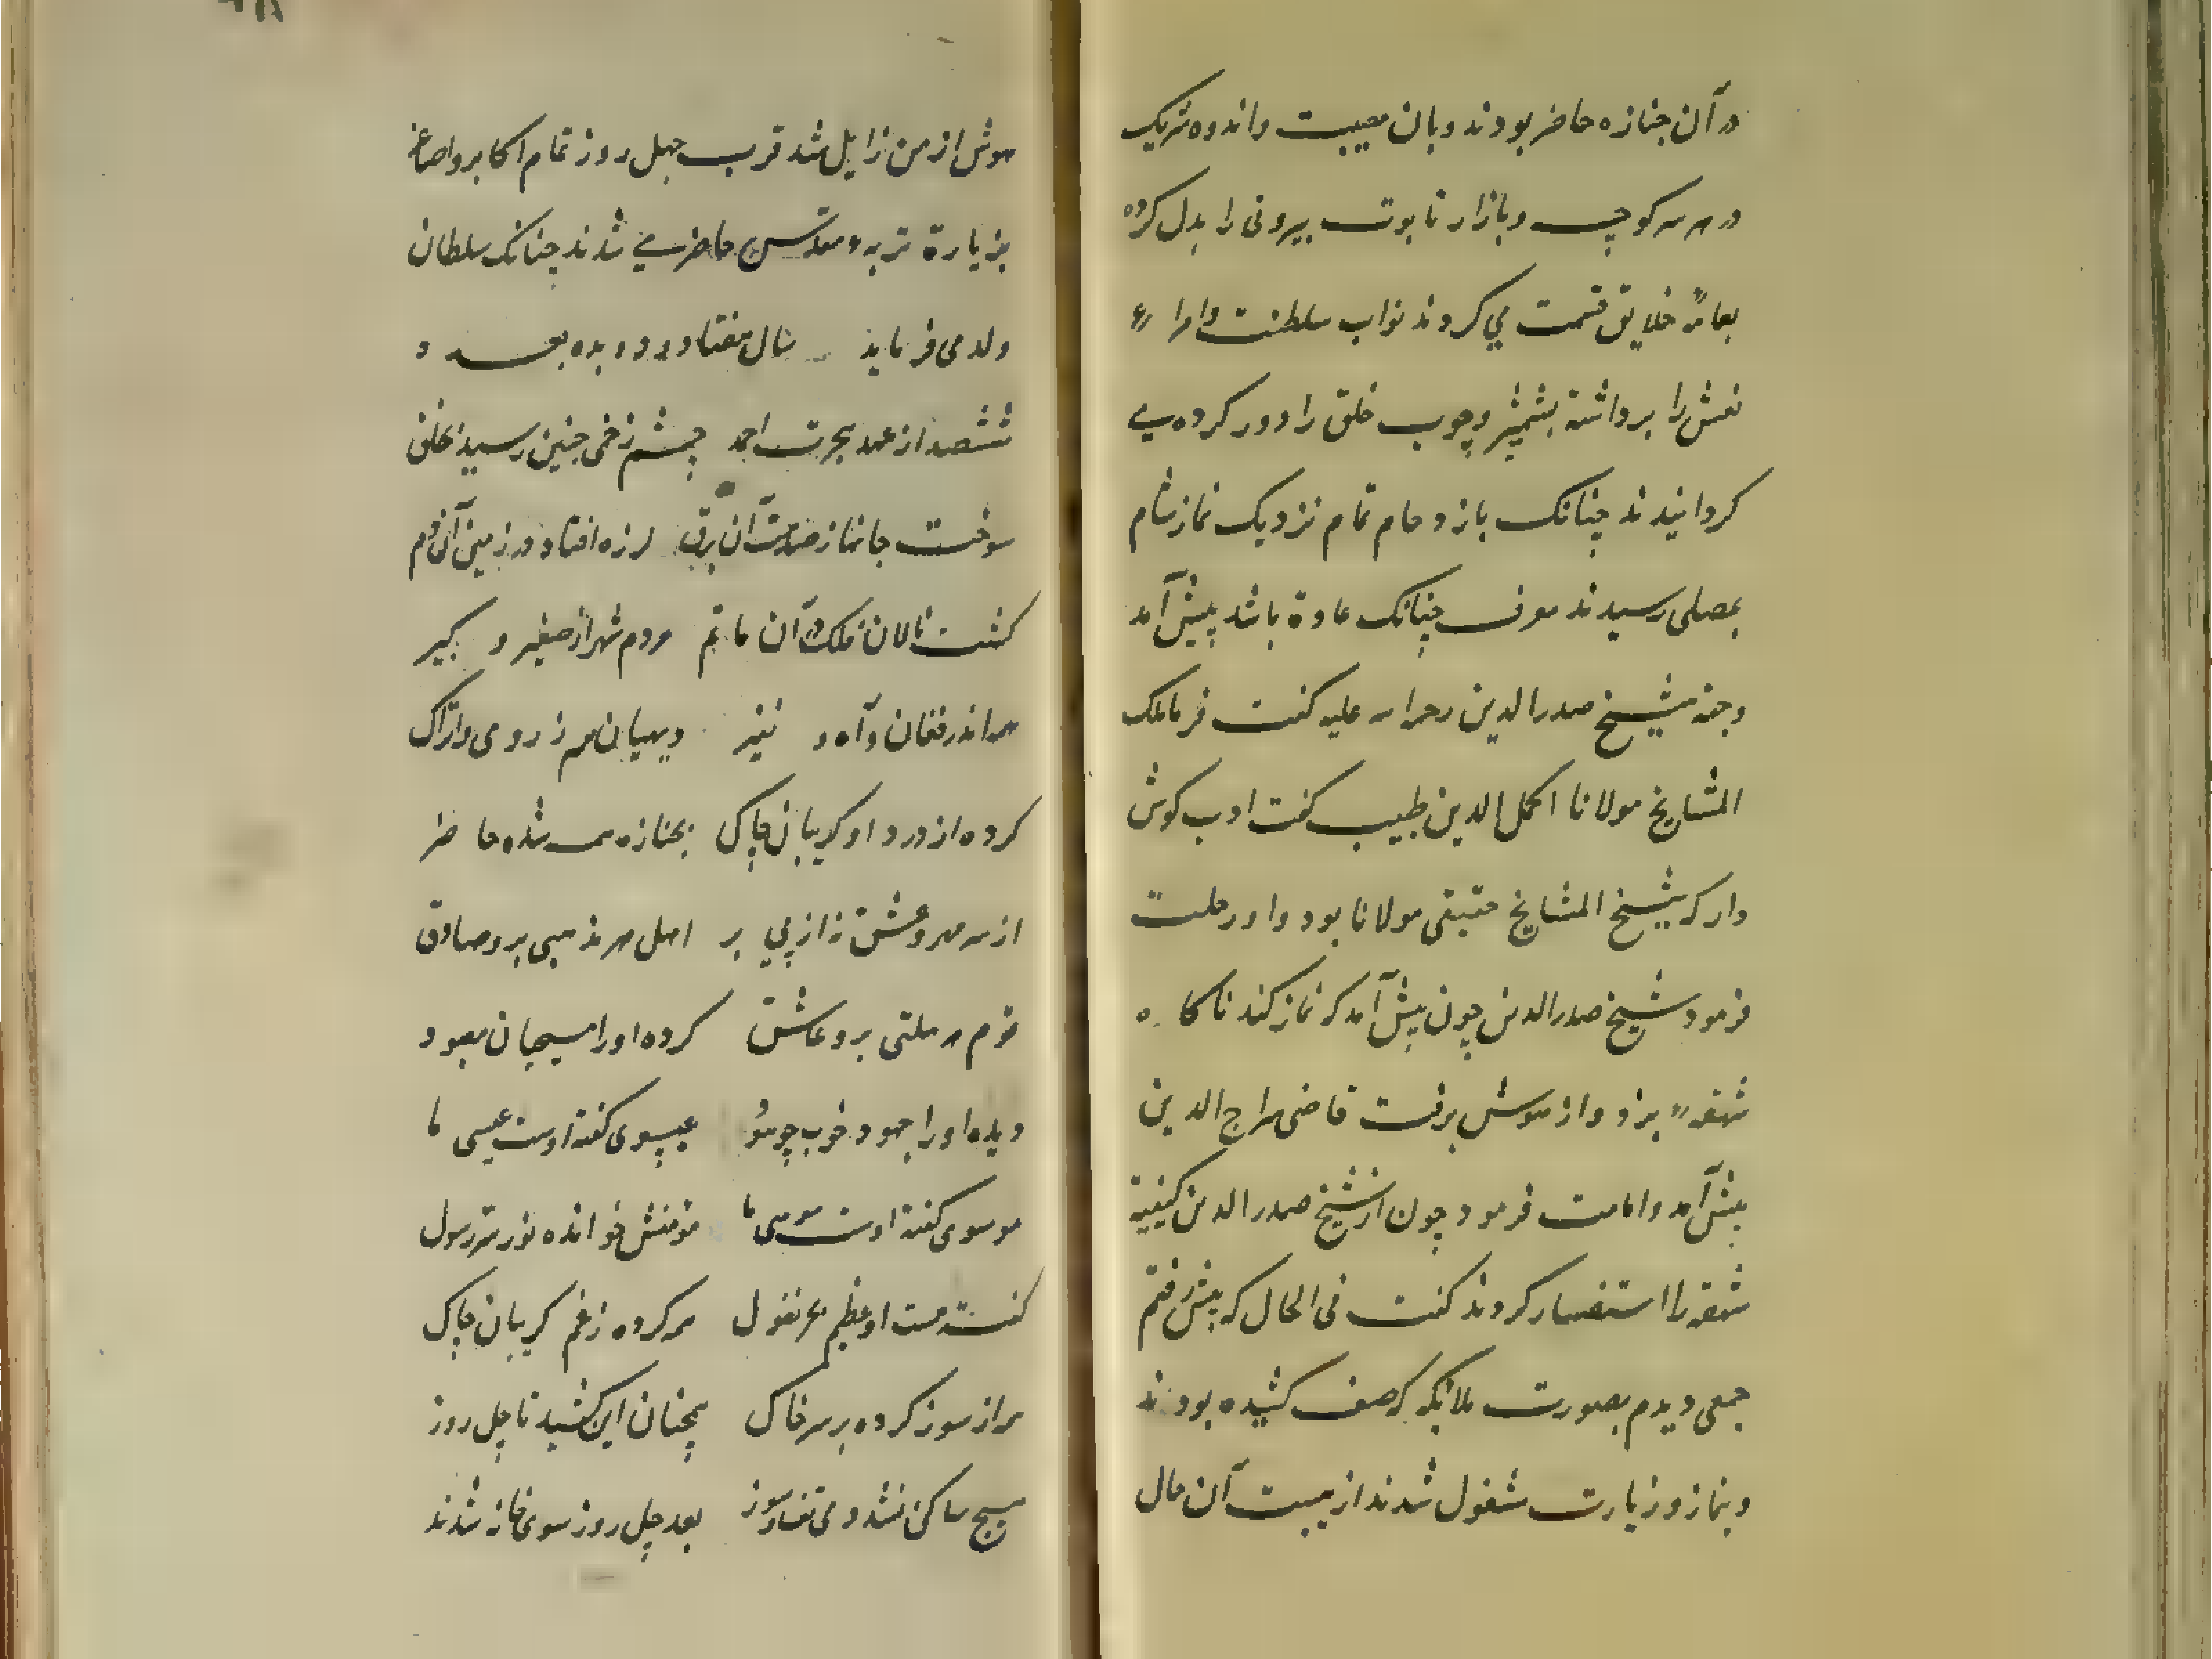 در آن جنازه حاضر بودند و بان مصیبت و اندوه شریک
در هر سه کوچه و بازار تابوت بیرونی را بدل کرده
بعامهٔ خلایق قسمت می کردند نواب سلطنت و امرا
نعش را برداشته بشمشیر و چوب خلق را دور کرده می
کردانیدند چنانک بازدحام تمام نزدیک نماز شام
بمصلی رسیدند معرف چنانک عادة باشد پیش آمد
و جهة شیخ صدرالدین رحمه الله علیه کفت فرما ملک
المشایخ مولانا اکمل الدین طبیب کفت ادب کوش
دار که شیخ المشایخ حقیقی مولانا بود و او رحلت
فرمود شیخ صدرالدین چون پیش آمد که نماز کند ناکاه
شهقهٔ بزد و از هوش برفت قاضی سراج الدین
پیش آمد و امامت فرمود چون از شیخ صدرالدین کیفیة
شهقه را استفسار کردند کفت فی الحال که پیش رفتم
جمعی دیدم بصورت ملائکه که صف کشیده بودند
و بنماز و زیارت مشغول شدند از هیبت آن حال
هوش از من زایل شد قرب چهل روز تمام اکابر و اصاغر
بزیارة تربهٔ مقدسش حاضر می شدند چنانک سلطان
ولد می فرماید سال هفتاد و دو بده بعدد
ششصد از عهد هجرت احمد چشم زخمی چنین رسید بخلق
سوخت جانها از صدمت آن برق لرزه افتاد در زمین آن دم
کشت نالان فلک در آن ماتم مردم شهر از صغیر و کبیر
همه اندر فغان و آه و نفیر دیهیان هم ز رومی و اتراک
کرده از درد او کریبان چاک بجنازه همه شده حاضر
از سر مهر و عشق نه از پی بر اهل هر مذهبی برو صادق
قوم هر ملتی برو عاشق کرده او را مسیحیان معبود
دیده او را جهود خوب چو هود عیسوی کفته اوست عیسی ما
موسوی کفته اوست موسی ما مومنش خوانده نور سر رسول
کفته هست او عظیم بحر نغول همه کرده ز غم کریبان چاک
همه از سوز کرده بر سر خاک همچنان این کشید تا چل روز
هیچ ساکن نشد دمی تف و سوز بعد چل روز سوی خانه شدند